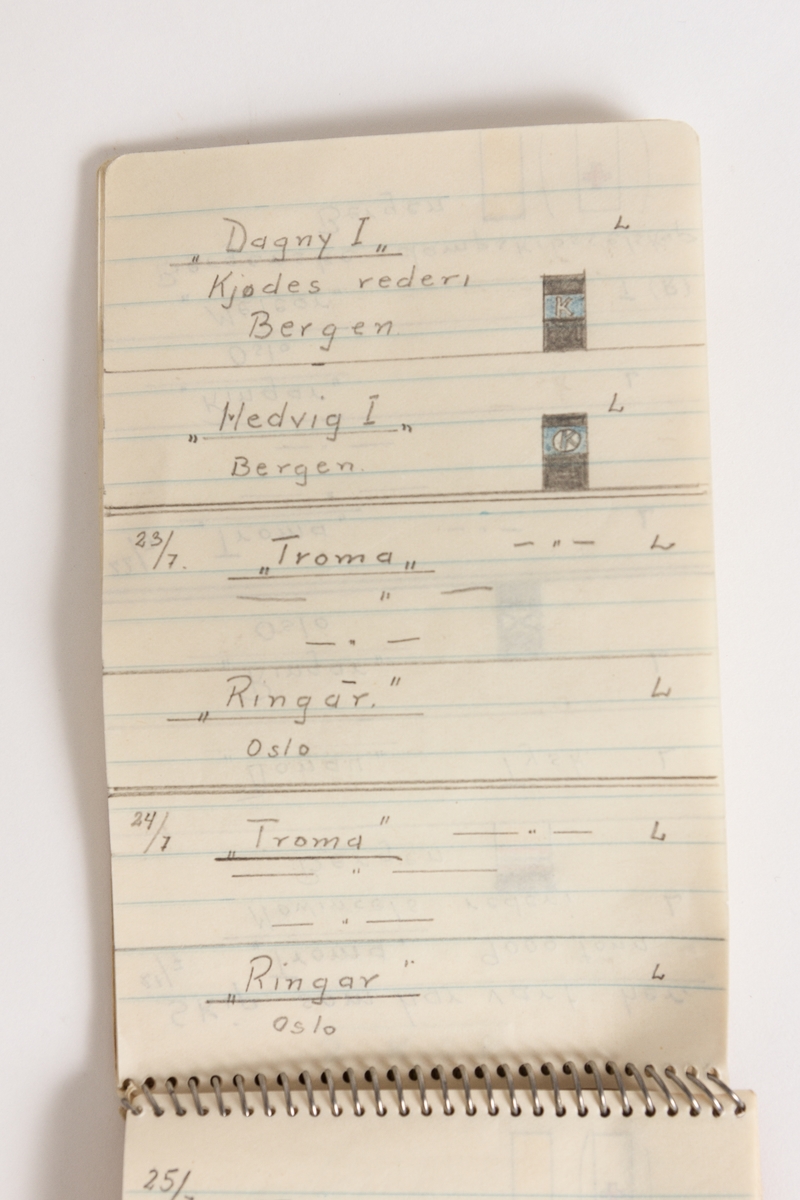 „Dagny I„ L
Kjødes rederi
K
Bergen
„Hedvig I„ L
K
Bergen.
23/7. „Troma„ — „ — L
— „ —
— „ —
„Ringar." L
Oslo
24/7 „Troma" — „ — L
— „ —
— „ —
„Ringar" L
Oslo
25/7